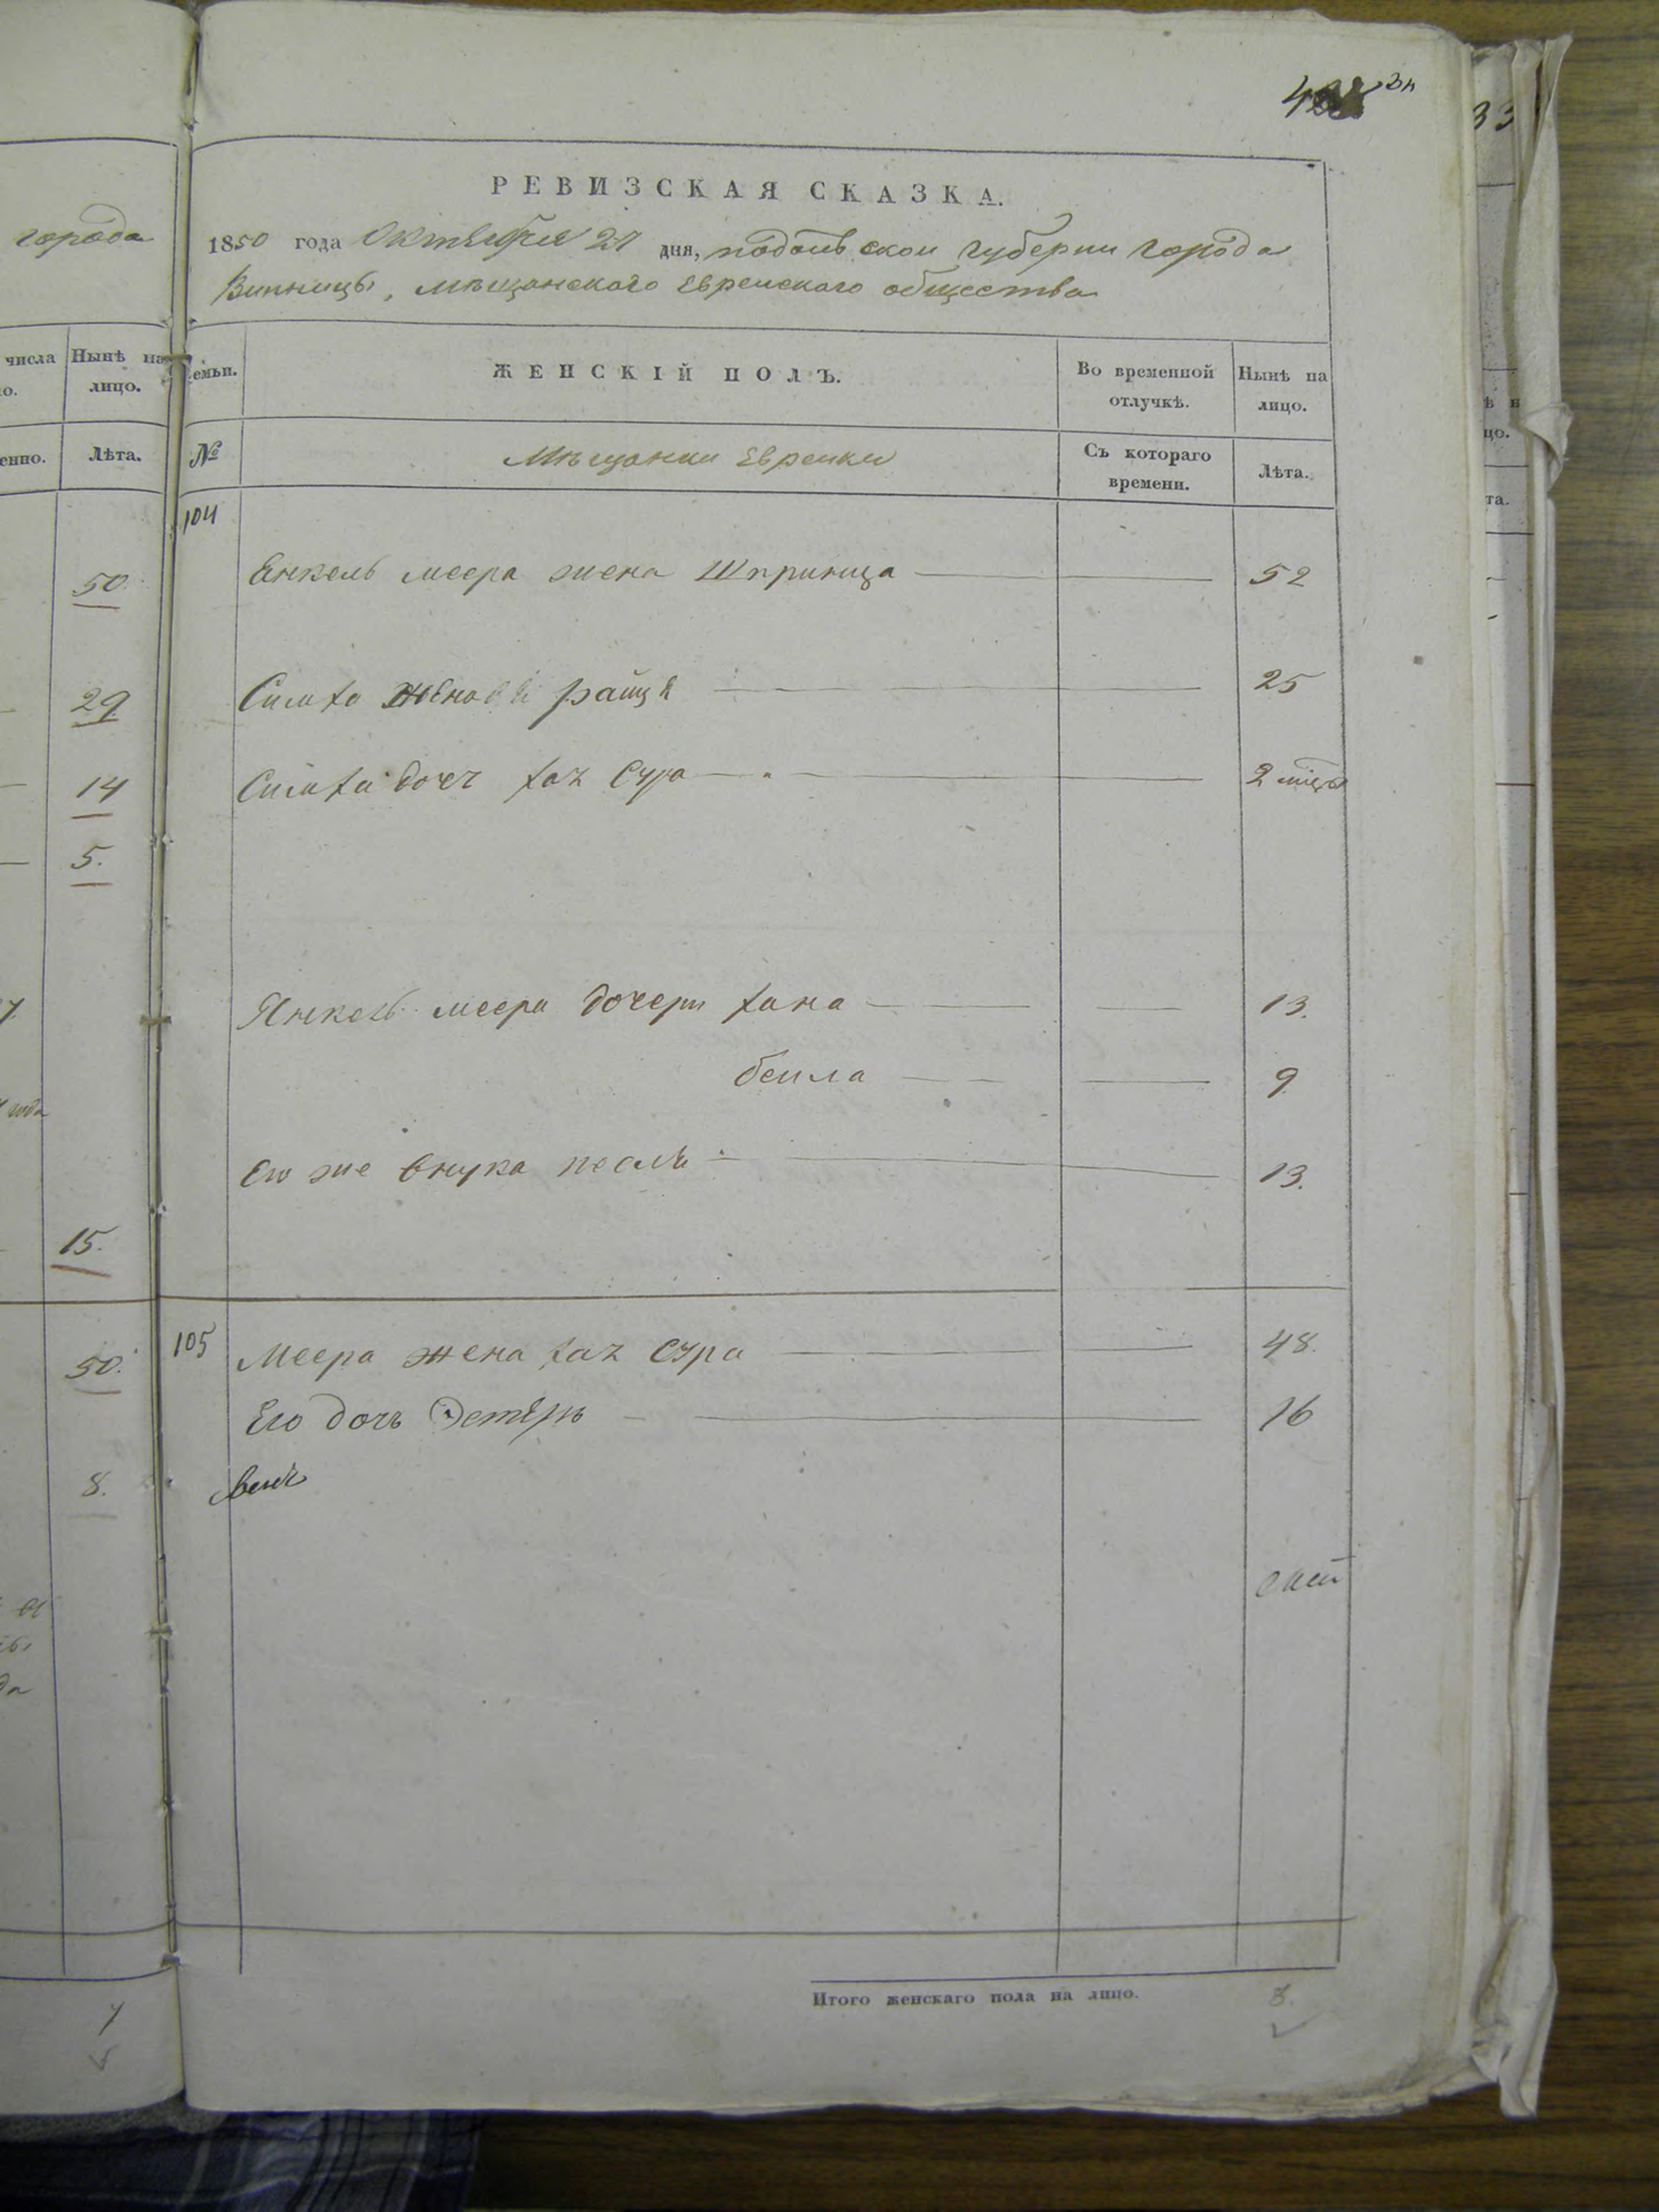 34
33
РЕВИЗСКАЯ СКАЗКА.
города
1850 года Октября 27 дня, подольской губернии города
Винницы, мѣщанского Еврейского общества
числа
Нынѣ на лицо.
емьи.
ЖЕНСКІЙ ПОЛЪ.
Во временной отлучкѣ.
Нынѣ на лицо.
енно.
Лѣта.
№
Мѣщанки Еврейки
Съ котораго времени.
Лѣта.
104
50
Енкель меера жена Шпринца 52
29
Симхо жена Райця 25
14
Симхи доч хая Сура 2 мѣсц
5.
Янкель меера дочери хана 13.
года
бейла 9
Его же внука песля 13.
15.
105
50.
Меера жена хая Сура 48.
Его дочь Эстеръ 16
8.
Итого женскаго пола на лицо. 8.